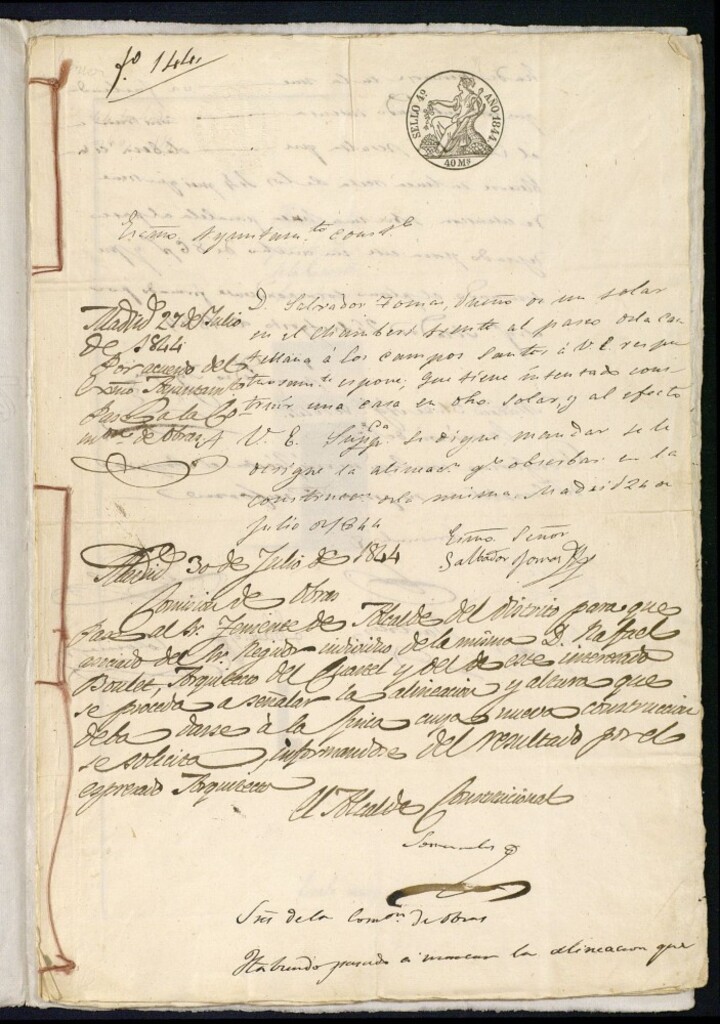 fº 144
SELLO 4º AÑO 1844
40 Ms
Excmo. Ayuntam.to Const.l
D. Salvador Tomas, Dueño de un solar
en el Chamberi frente al paseo de la Cas
tellana á los campos Santos á V.E. respe
tuosam.te espone; Que tiene intentado cons
truir una casa en dho solar, y al efecto
A V. E. Supp.ca se digne mandar se le
designe la alineac.n q.e observar en la
de la misma. Madrid 24 de
Julio de 1844
Exmo. Señor
Salvador Tomas
Madrid 27 de Julio
de 1844
Por acuerdo del
Exmo Ayuntamto
Pase a la Co
mon de Obras
Madrid 30 de Julio de 1844
Comision de Obras
Pase al Sr. Teniente de Alcalde del distrito para que
asociado del Sr. Regidor individuo de la misma D. Rafael
Boulet, Arquitecto del Cuartel y del de este interesado
se proceda a señalar la alineacion y altura que
deba darse á la finca cuya nueva construccion
se solicita, informandose del resultado por el
espresado Arquitecto
El Alcalde Constitucional
Sres de la Comon de Obras
Habiendo pasado a marcar la alineacion que